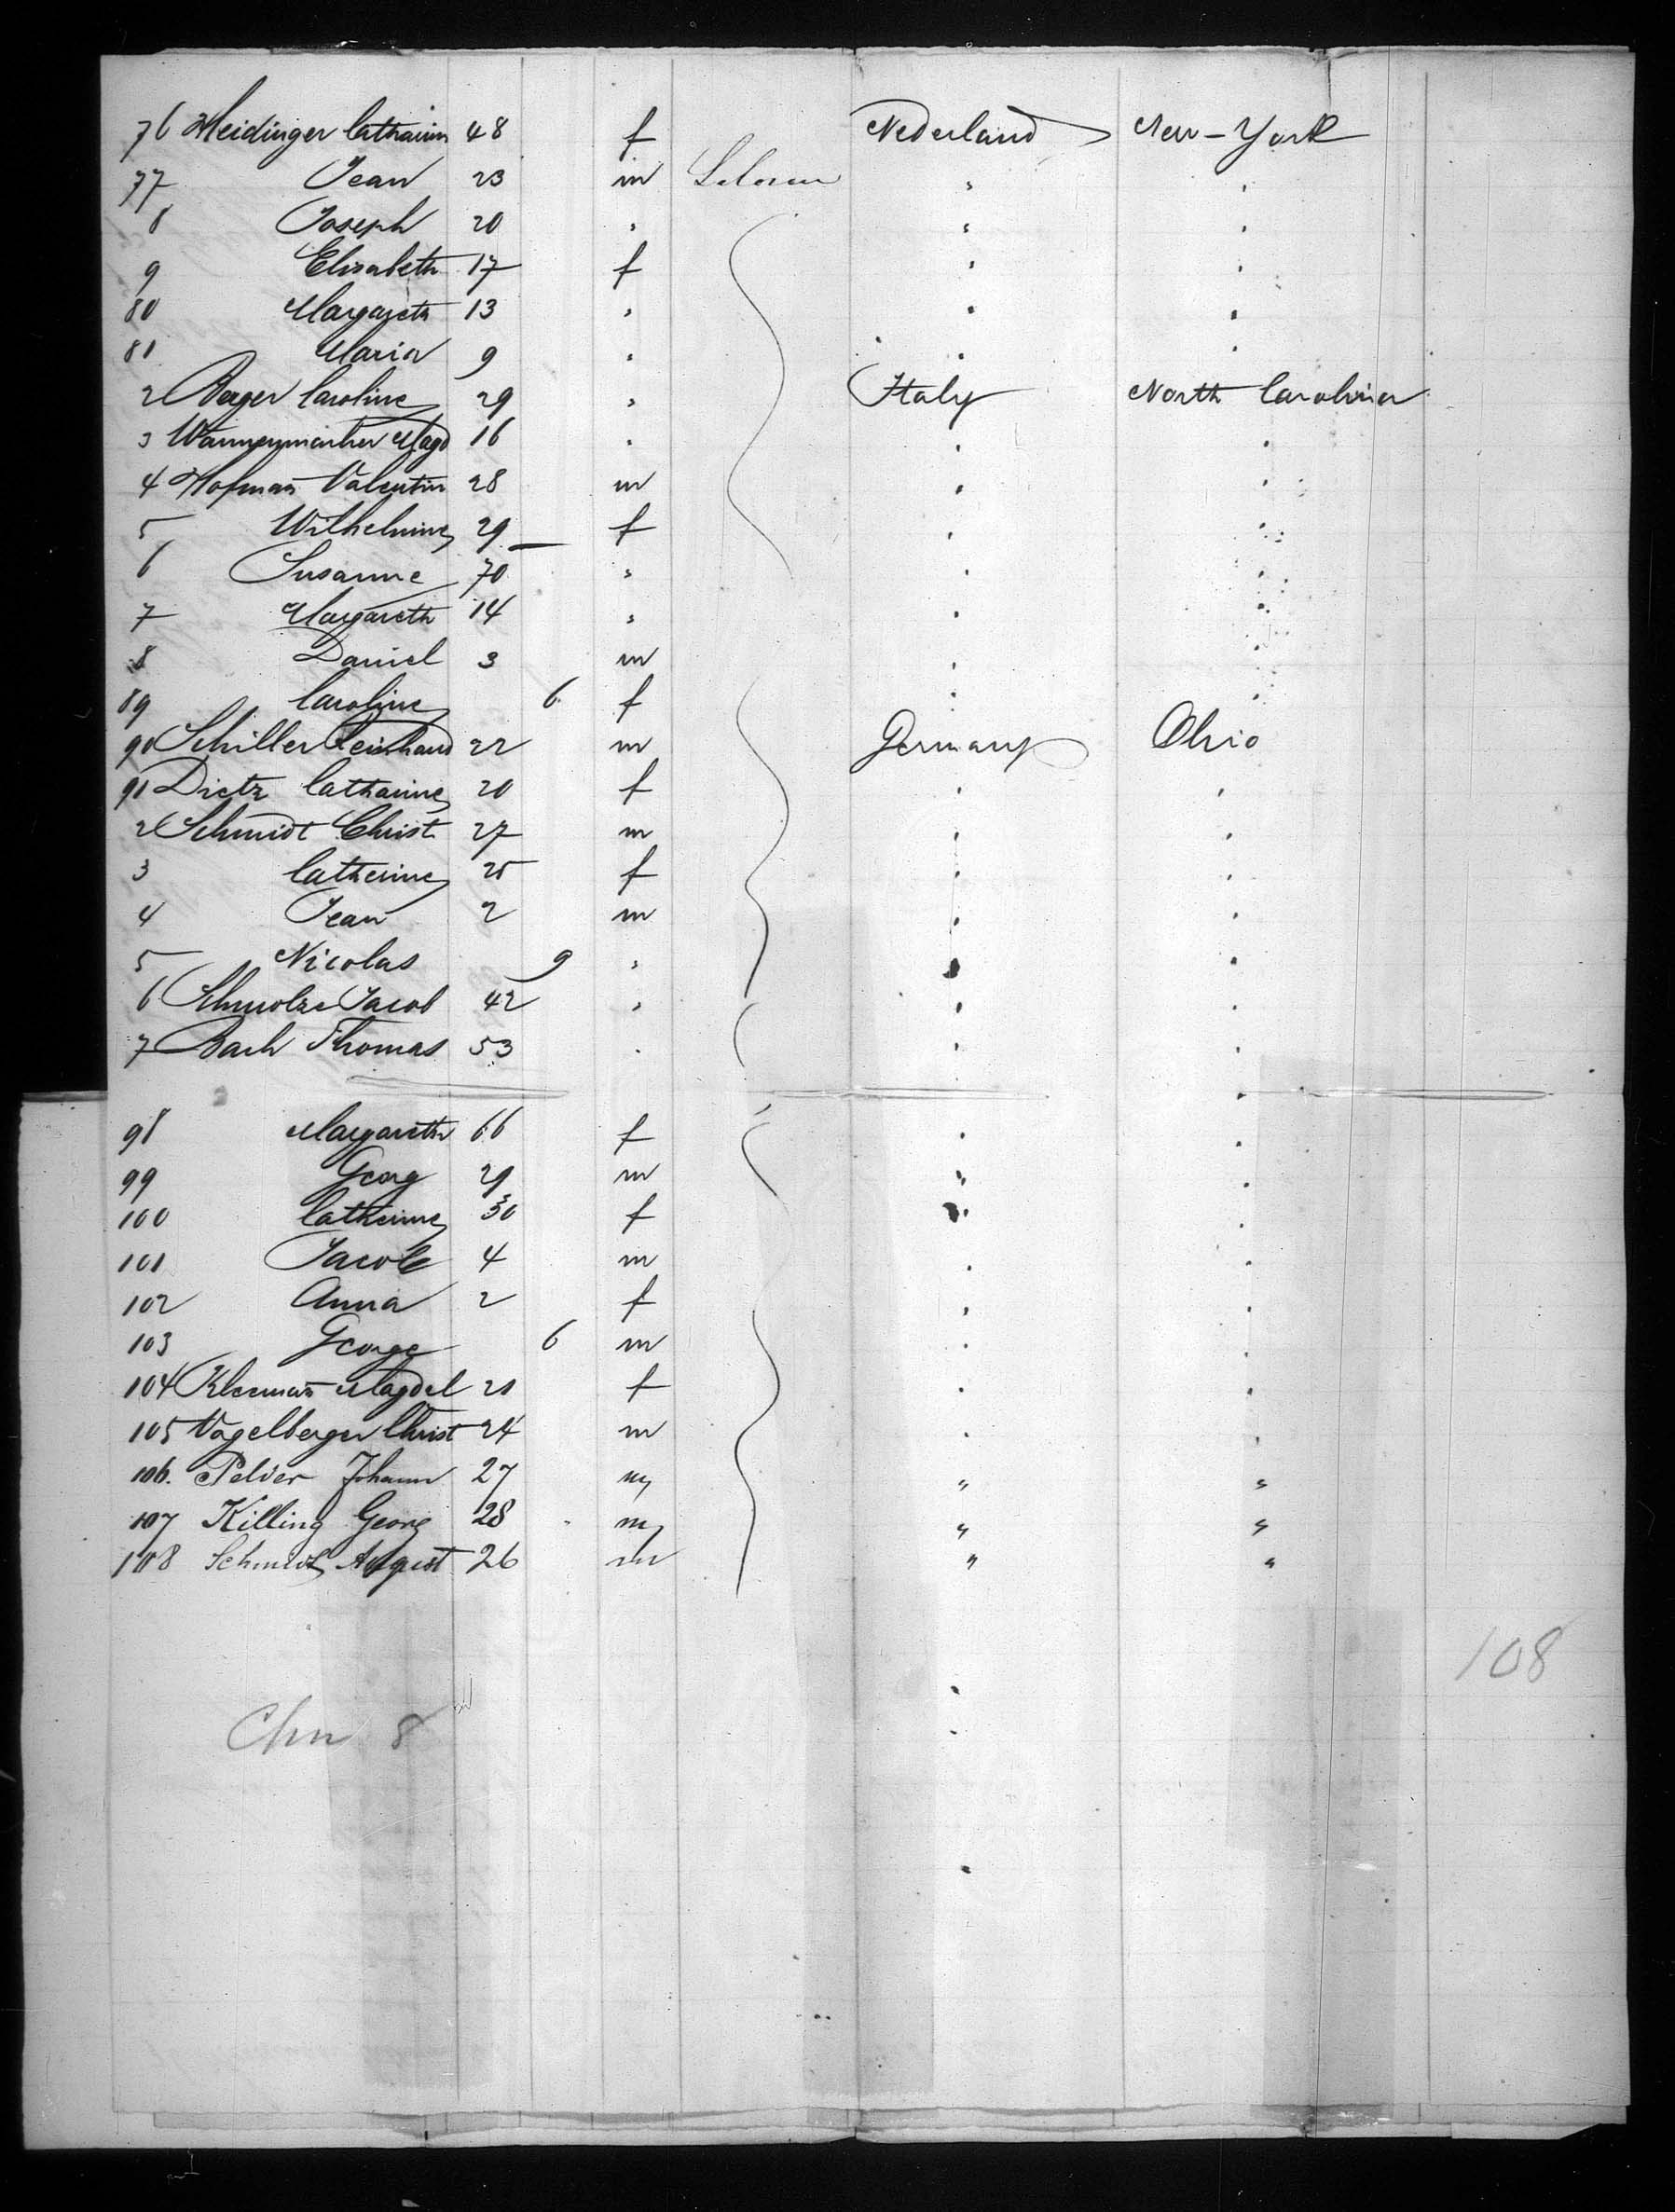 76 Meidinger Catharina 48 f Nederland New-York
77 Jean 23 m " "
8 Joseph 20 " " "
9 Elisabeth 17 f " "
80 Margareth 13 " " "
81 Maria 9 " " "
2 Berger Caroline 29 " Italy North Carolina
3 Magd 16 " " "
4 Hofman Valentin 28 m " "
5 Wilhelmine 29 f " "
6 Susanne 70 " " "
7 Margareth 14 " " "
8 Daniel 3 m " "
89 Caroline 6 f " "
90 Schiller Reinhard 22 m Germany Ohio
91 Dietz Catharine 20 f " "
2 Schmidt Christ 27 m " "
3 Catherine 25 f " "
4 Jean 2 m " "
5 Nicolas 9 " " "
6 Schmolze Jacob 42 " " "
7 Bach Thomas 53 " " "
98 Margareth 66 f " "
99 Georg 29 m " "
100 Catherine 30 f " "
101 Jacob 4 m " "
102 Anna 2 f " "
103 George 6 m " "
104 Kleeman Magdel 21 f " "
105 Vogelberger Christ 24 m " "
106. Pelver Johann 27 m " "
107 Killing Georg 28 m " "
108 Schmidt August 26 m " "
108
Chn 8